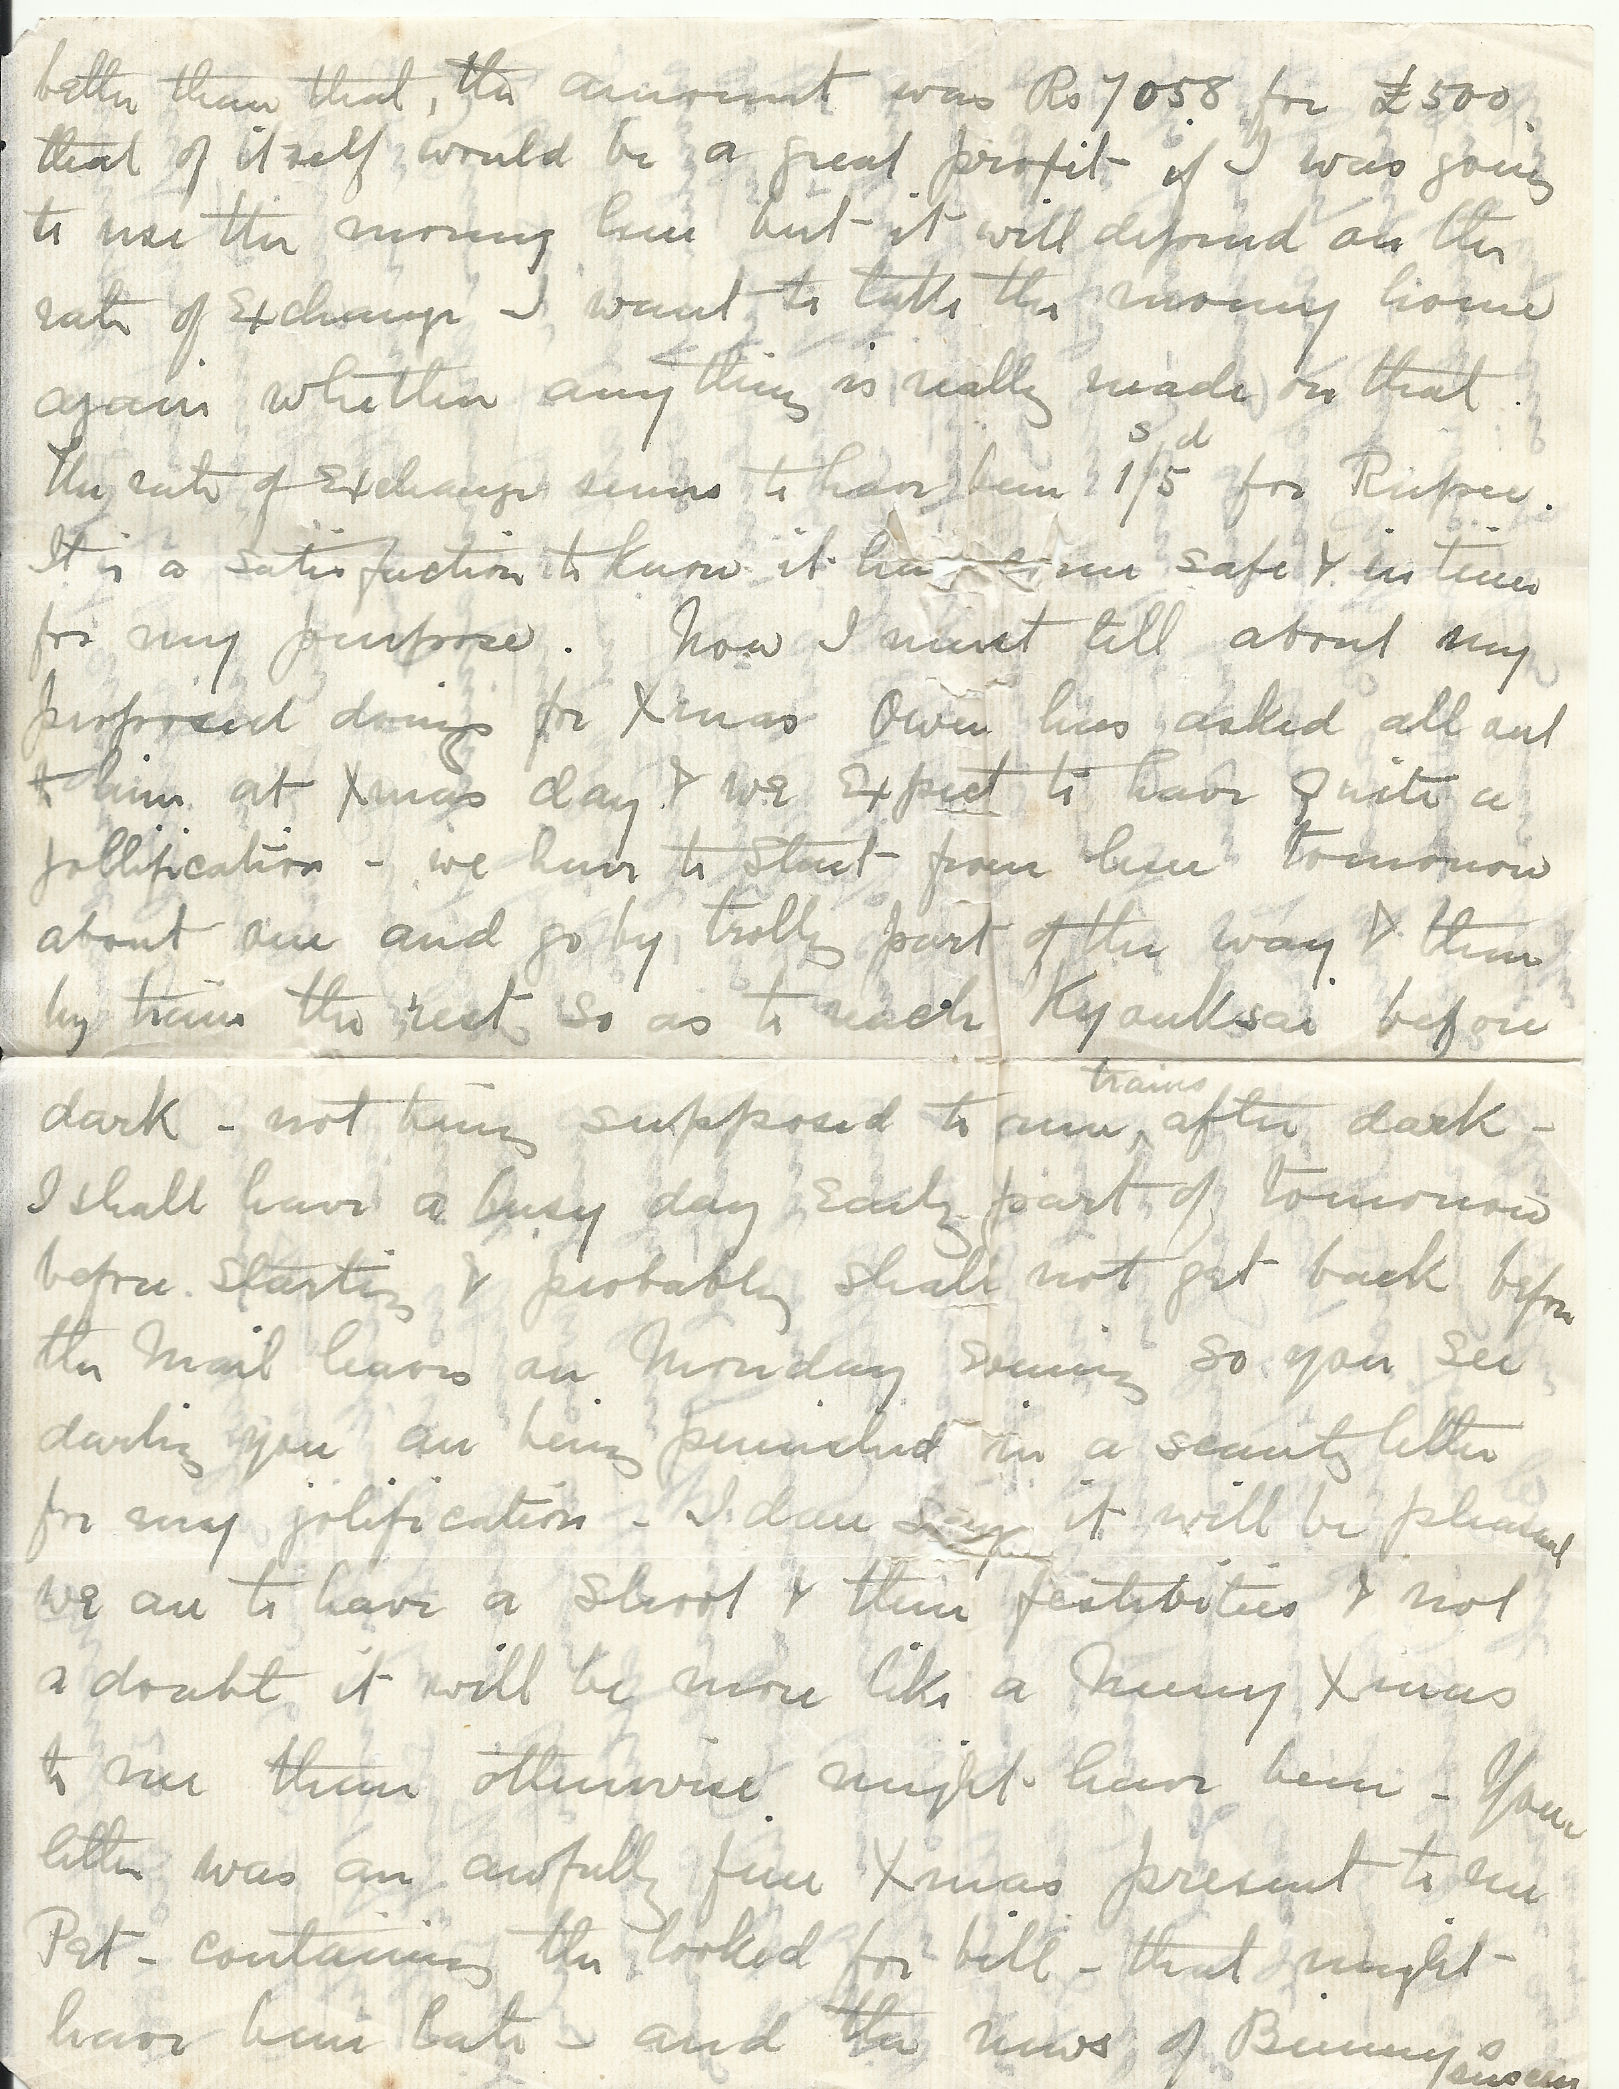 better than that, the amount was Rs 7058 for £500.
that of itself would be a great profit if I was going
to use the money here but it will depend on the
rate of Exchange I want to take the money home
again whether anything is really made on that.
s d
The rate of Exchange seems to have been 1/5 for Rupee.
It is a satisfaction to know it has come safe & in time
for my purpose. Now I must tell about my
proposed doings for Xmas Owen has asked all out
to him at Xmas day & we Expect to have quite a
jollification - we have to start from here tomorrow
about one and go by trolly part of the way & then
by train the rest so as to reach Kyouksai before
trains
dark - not being supposed to run, after dark -
I shall have a busy day Early part of tomorrow
before starting & probably shall not get back before
the Mail leaves on Monday so you see
darling you are being punished in a scanty letter
for my jolification - I dare say it will be pleasant
we are to have a shoot & then festibities & not
a doubt it will be more like a Merry Xmas
to me than otherwise might have been - Your
letter was an awfully fine Xmas present to me
Pet - containing the looked for bill - that might
have been late - and the news of Binny's